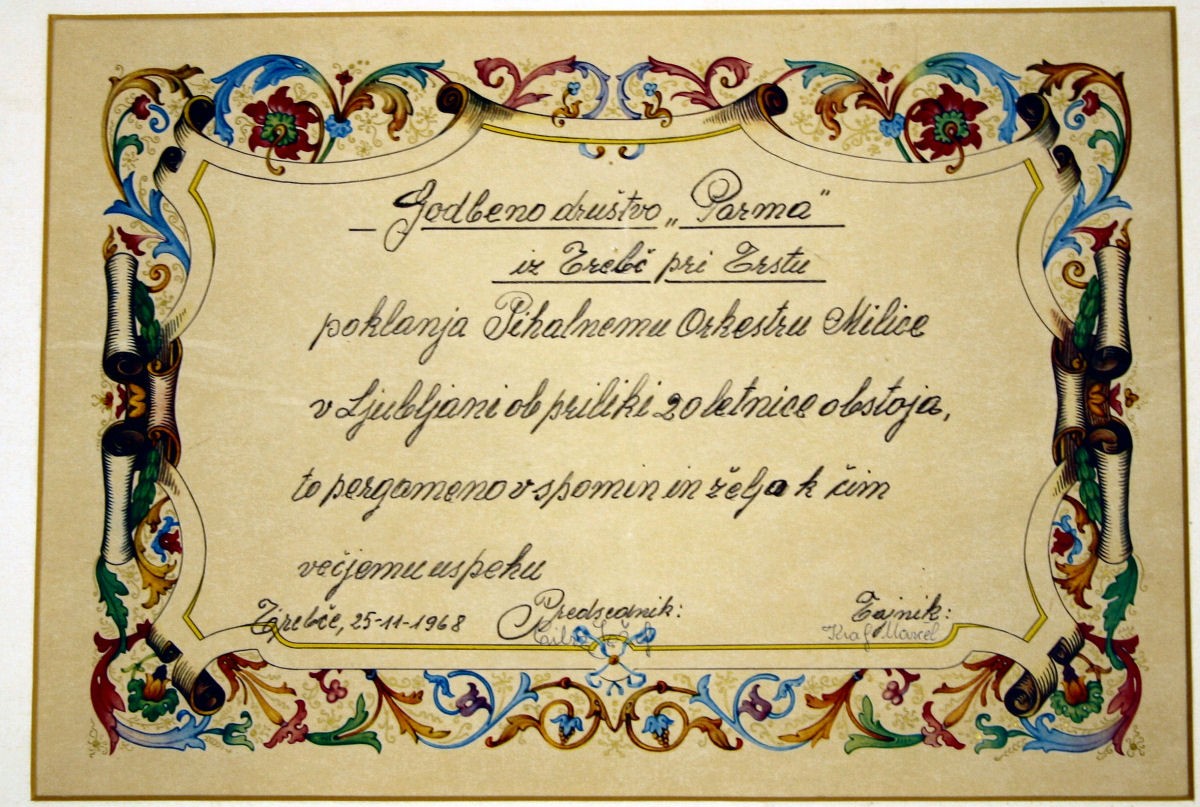 Godbeno društvo „Parma“
iz Trebč pri Trstu
poklanja Pihalnemu Orkestru Milice
v Ljubljani ob priliki 20 letnice obstoja,
to pergameno v spomin in željo k čim
večjemu uspehu
Trebče, 25-11-1968 Predsednik: Tajnik:
Kralj Marcel